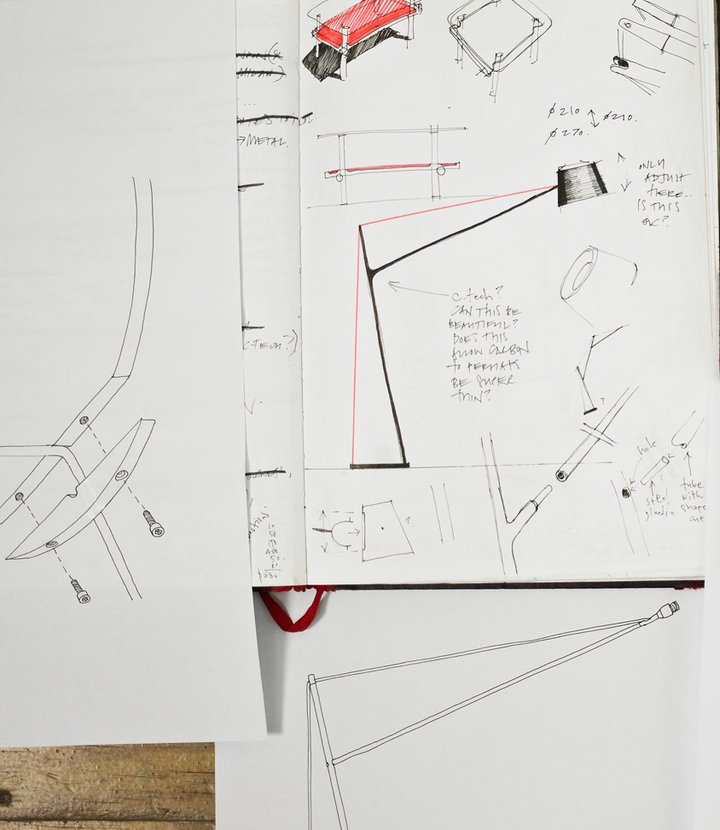 →METAL.
C-TECH?)
Ø210 ↕ Ø210.
Ø270.
ONLY
ADJUST
HERE.
IS THIS
OK?
C.tech?
CAN THIS BE
BEAUTIFUL?
DOES THIS
ALLOW CARBON
TO PERHAPS
BE SUPER
THIN?
?
?
hole
steel
tube
with
shape
cut